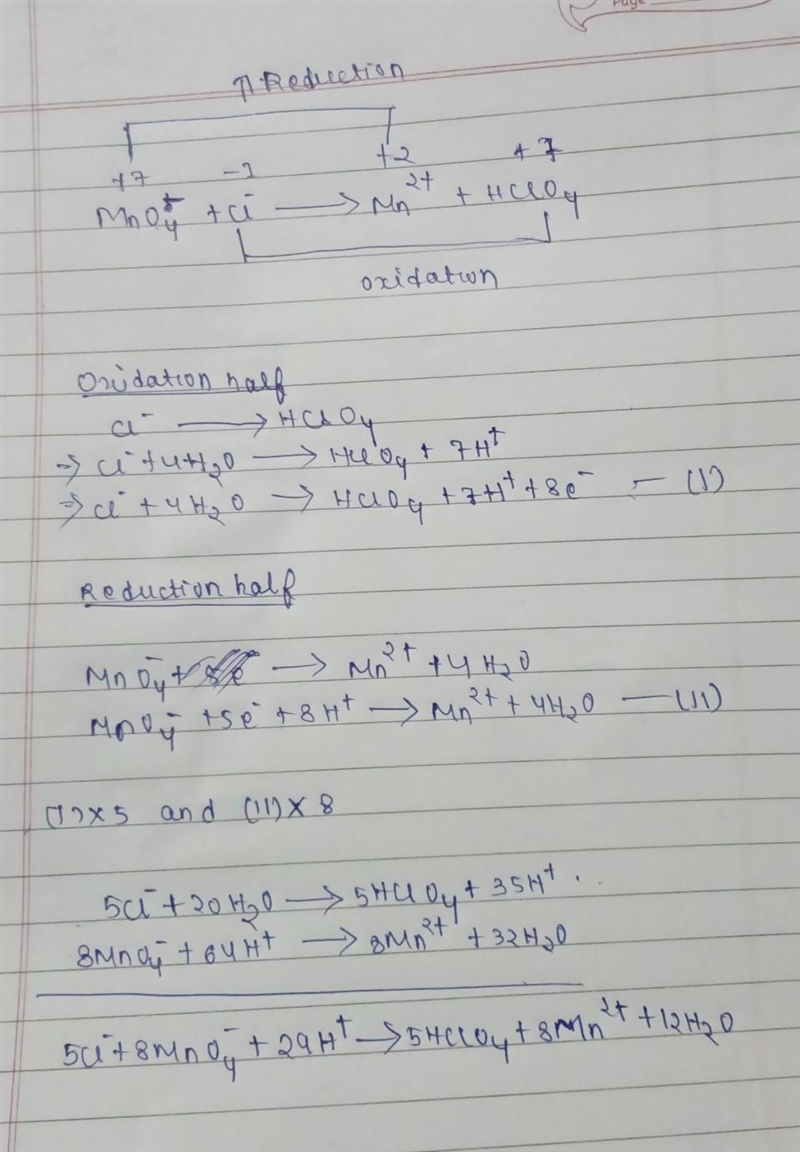 Page
Reduction
+7 -1 +2 +7
MnO₄ + Cl⁻ ⟶ Mn²⁺ + HClO₄
oxidation
Oxidation half
Cl⁻ ⟶ HClO₄
⇒ Cl⁻ + 4H₂O ⟶ HClO₄ + 7H⁺
⇒ Cl⁻ + 4H₂O ⟶ HClO₄ + 7H⁺ + 8e⁻ — (I)
Reduction half
MnO₄⁻ + ⟶ Mn²⁺ + 4H₂O
MnO₄⁻ + 5e⁻ + 8H⁺ ⟶ Mn²⁺ + 4H₂O — (II)
(I) × 5 and (II) × 8
5Cl⁻ + 20H₂O ⟶ 5HClO₄ + 35H⁺
8MnO₄⁻ + 64H⁺ ⟶ 8Mn²⁺ + 32H₂O
5Cl⁻ + 8MnO₄⁻ + 29H⁺ ⟶ 5HClO₄ + 8Mn²⁺ + 12H₂O